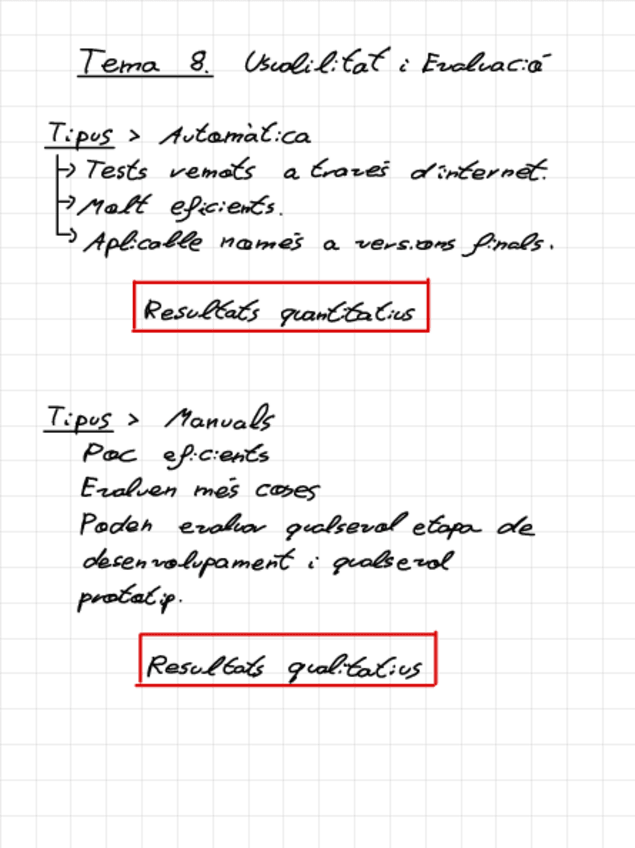 Tema 8. Usabilitat i Evaluació
Tipus > Automàtica
→ Tests remots a través d'internet.
→ Molt eficients.
→ Aplicable només a versions finals.
Resultats quantitatius
Tipus > Manuals
Poc eficients
Evaluen més coses
Poden evaluar qualsevol etapa de
desenvolupament i qualsevol
prototip.
Resultats qualitatius